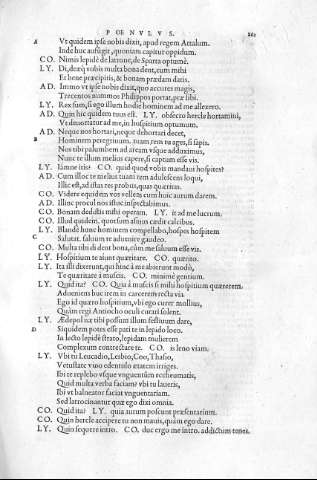 POENVLVS.
A Vt quidem ipse nobis dixit, apud regem Attalum.
Inde huc aufugit, quoniam capitur oppidum.
CO. Nimis lepide de latrone, de Sparta optume.
LY. Di, deæq; vobis multa bona dent, cum mihi
Et bene præcipitis, & bonam prædam datis.
AD. Immo vt ipse nobis dixit, quo accures magis,
Trecentos nummos Philippos portat, præsibi.
LY. Rex sum, si ego illum hodie hominem ad me allexero.
AD. Quin hic quidem tuus est. LY. obsecro hercle hortamini,
Vt deuortatur ad me, in hospitium optumum.
AD. Neque nos hortari, neque dehortari decet,
B Hominem peregrinum, tuam rem tu ages, si sapis.
Nos tibi palumbem ad aream vsque adduximus,
Nunc te illum melius capere, si captum esse vis.
LY. Iamne itis? CO. quid quod vobis mandaui hospites?
AD. Cum illoc te melius tuam rem adulescens loqui,
Illic est, ad istas res probus, quas quæritas.
CO. Videre equidem vos vellem cum huic aurum darem.
AD. Illinc procul nos istuc inspectabimus.
CO. Bonam dedistis mihi operam. LY. it ad me lucrum.
CO. Illud quidem, quorsum asinus cædit calcibus.
LY. Blande hunc hominem compellabo, hospes hospitem
C Salutat. saluum te aduenire gaudeo.
CO. Multa tibi di dent bona, cum me saluum esse vis.
LY. Hospitium te aiunt quæritare. CO. quærito.
LY. Ita illi dixerunt, qui hinc à me abierunt modò,
Te quæritare à muscis. CO. minime gentium.
LY. Quid ita? CO. Quia à muscis si mihi hospitium quærerem,
Adueniens huc irem in carcerem recta via.
Ego id quæro hospitium, vbi ego curer mollius,
Quàm regi Antiocho oculi curari solent.
LY. Ædepol næ tibi possum illum festiuum dare,
D Siquidem potes esse pati te in lepido loco.
In lecto lepide strato, lepidam mulierem
Complexum contrectare te. CO. is leno viam.
LY. Vbi tu Leucadio, Lesbio, Coo, Thasio,
Vetustate vino edentulo ætatem irriges.
Ibi te replebo vsque vnguentûm eccheumatis,
Quid multa verba faciam? vbi tu laueris,
Ibi vt balneator faciat vnguentariam.
Sed latrocinantur quæ ego dixi omnia.
CO. Quid ita? LY. quia aurum poscunt præsentarium.
CO. Quin hercle accipere tu non mauis, quàm ego dare.
LY. Quin sequere intro. CO. duc ergo me intro. addictum tenes.